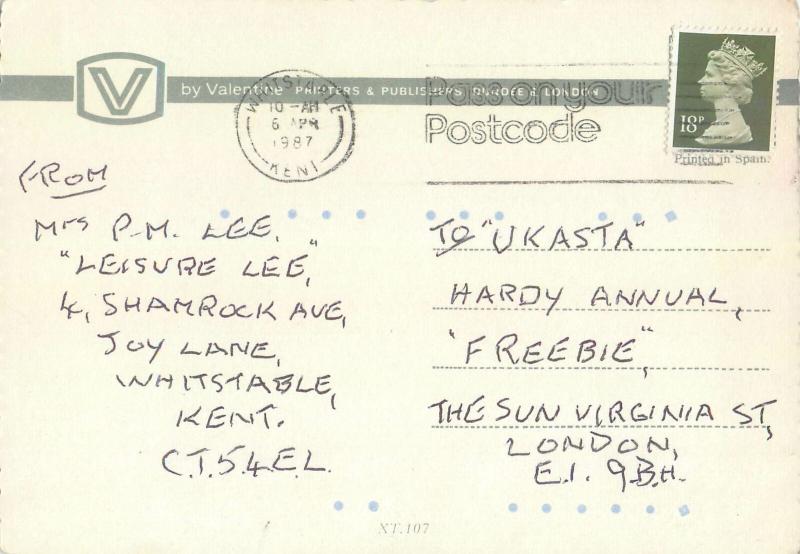 V
by Valentine PRINTERS & PUBLISHERS DUNDEE & LONDON
WHITSTABLE
10 - AM
6 APR
1987
KENT
Pass on your
Postcode
18P
Printed in Spain.
FROM
Mrs P.M. LEE,
"LEISURE LEE,"
4, SHAMROCK AVE,
JOY LANE,
WHITSTABLE,
KENT.
C.T.5.4.E.L.
TO "UKASTA"
HARDY ANNUAL,
"FREEBIE",
THE SUN VIRGINIA ST,
LONDON,
E.1. 9.B.H.
XT.107